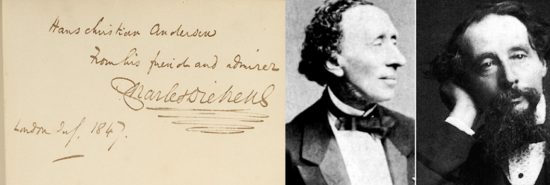 Hans Christian Andersen
From his friend and admirer
Charles Dickens
London July 1847.